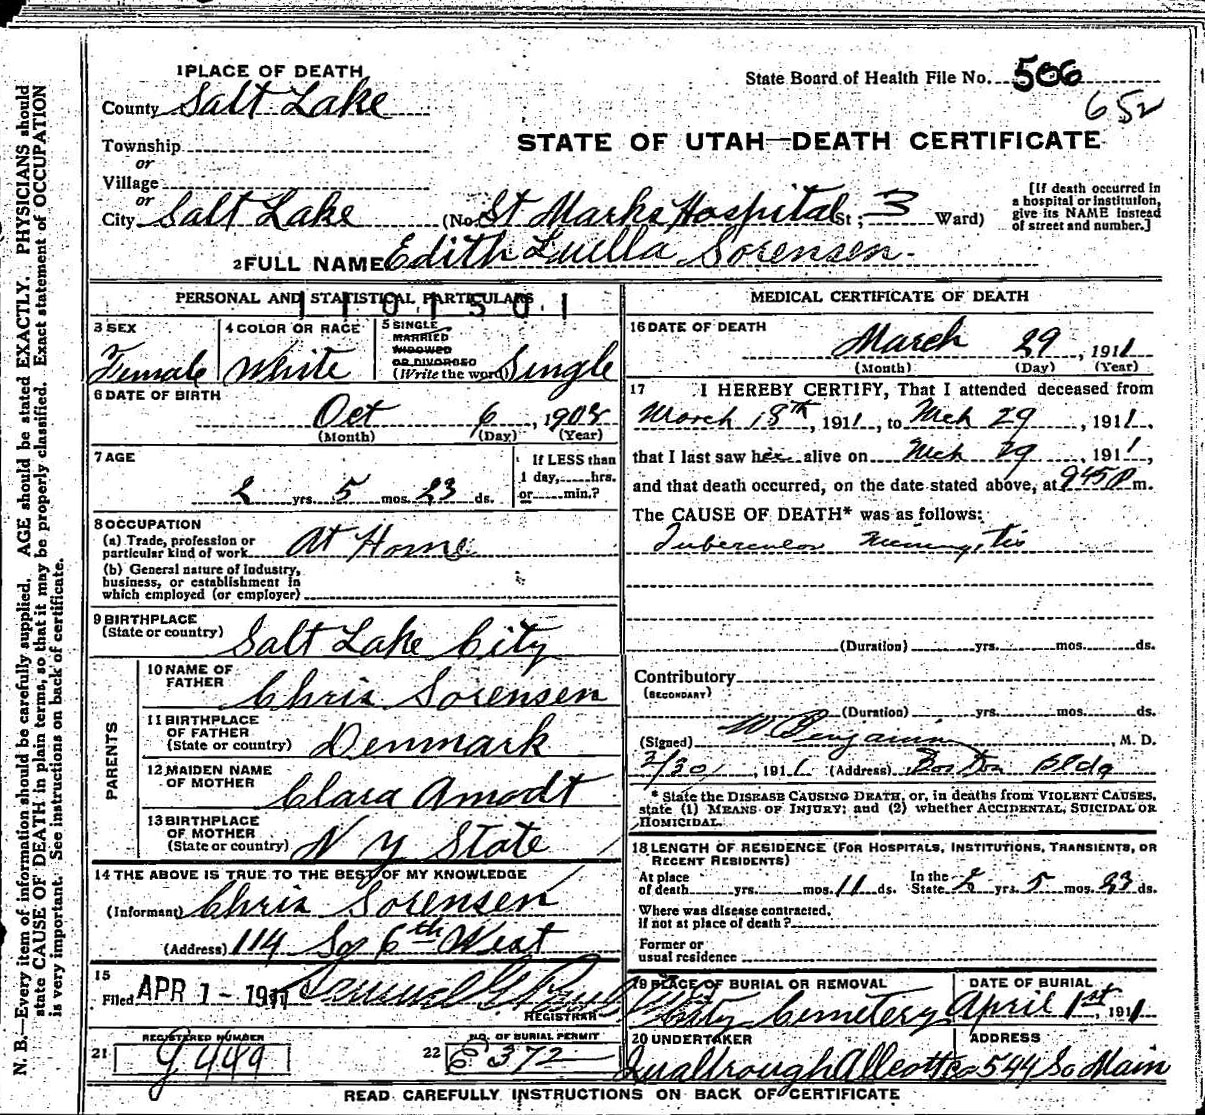 1 PLACE OF DEATH
State Board of Health File No. 506
County Salt Lake
652
STATE OF UTAH—DEATH CERTIFICATE
Township
or
Village
or
City Salt Lake (No. St Marks Hospital St; 3 Ward)
[If death occurred in a hospital or institution, give its NAME instead of street and number.]
2 FULL NAME Edith Luella Sorensen
PERSONAL AND STATISTICAL PARTICULARS
1101501
3 SEX
Female
4 COLOR OR RACE
White
5 SINGLE
MARRIED
WIDOWED
OR DIVORCED
(Write the word) Single
6 DATE OF BIRTH
Oct 6, 1908
(Month) (Day) (Year)
7 AGE
2 yrs. 5 mos. 23 ds.
If LESS than
1 day, hrs.
or min.?
8 OCCUPATION
(a) Trade, profession or
particular kind of work At Home
(b) General nature of industry,
business, or establishment in
which employed (or employer)
9 BIRTHPLACE
(State or country) Salt Lake City
PARENTS
10 NAME OF
FATHER Chris Sorensen
11 BIRTHPLACE
OF FATHER
(State or country) Denmark
12 MAIDEN NAME
OF MOTHER Clara Amodt
13 BIRTHPLACE
OF MOTHER
(State or country) N Y State
14 THE ABOVE IS TRUE TO THE BEST OF MY KNOWLEDGE
(Informant) Chris Sorensen
(Address) 114 So 6th West
15
Filed APR 1 - 1911
REGISTRAR
REGISTERED NUMBER
21 9449
NO. OF BURIAL PERMIT
22 372
MEDICAL CERTIFICATE OF DEATH
16 DATE OF DEATH
March 29, 1911
(Month) (Day) (Year)
17 I HEREBY CERTIFY, That I attended deceased from
March 18th, 1911, to Mch 29, 1911,
that I last saw her alive on Mch 29, 1911,
and that death occurred, on the date stated above, at 945 P m.
The CAUSE OF DEATH* was as follows:
Tubercular Meningitis
(Duration) yrs. mos. ds.
Contributory
(SECONDARY)
(Duration) yrs. mos. ds.
(Signed) Benjamin, M. D.
3/30, 1911 (Address) Boston Bldg
* State the DISEASE CAUSING DEATH, or, in deaths from VIOLENT CAUSES,
state (1) MEANS OF INJURY; and (2) whether ACCIDENTAL, SUICIDAL OR
HOMICIDAL.
18 LENGTH OF RESIDENCE (FOR HOSPITALS, INSTITUTIONS, TRANSIENTS, OR
RECENT RESIDENTS)
At place
of death yrs. mos. 11 ds.
In the
State 2 yrs. 5 mos. 23 ds.
Where was disease contracted,
if not at place of death?
Former or
usual residence
19 PLACE OF BURIAL OR REMOVAL
City Cemetery
DATE OF BURIAL
April 1st, 1911
20 UNDERTAKER
ADDRESS
544 So Main
READ CAREFULLY INSTRUCTIONS ON BACK OF CERTIFICATE
N. B.—Every item of information should be carefully supplied. AGE should be stated EXACTLY. PHYSICIANS should
state CAUSE OF DEATH in plain terms, so that it may be properly classified. Exact statement of OCCUPATION
is very important. See instructions on back of certificate.